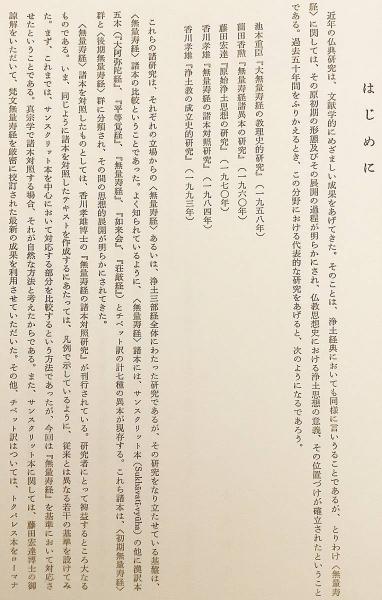 はじめに
近年の仏典研究は、文献学的にめざましい成果をあげてきた。そのことは、浄土経典においても同様に言いうることであるが、とりわけ〈無量寿
経〉に関しては、その原初期の形態及びその展開の過程が明らかにされ、仏教思想史における浄土思想の意義、その位置づけが確立されたということ
である。過去五十年間をふりかえるとき、この分野における代表的な研究をあげると、次のようになるであろう。
池本重臣『大無量寿経の教理史的研究』（一九五八年）
薗田香勲『無量寿経諸異本の研究』（一九六〇年）
藤田宏達『原始浄土思想の研究』（一九七〇年）
香川孝雄『無量寿経の諸本対照研究』（一九八四年）
香川孝雄『浄土教の成立史的研究』（一九九三年）
これらの諸研究は、それぞれの立場からの〈無量寿経〉あるいは、浄土三部経全体にわたった研究であるが、その研究をなり立たせている基盤は、
〈無量寿経〉諸本の比較ということであった。よく知られているように、〈無量寿経〉諸本には、サンスクリット本（Sukhāvatī-vyūha）の他に漢訳本
五本（『大阿弥陀経』、『平等覚経』、『無量寿経』、『如来会』、『荘厳経』）とチベット訳の計七種の異本が現存する。これら諸本は、〈初期無量寿経〉
群と〈後期無量寿経〉群に分類され、その間の思想的展開が明らかにされてきた。
〈無量寿経〉諸本を対照したものとしては、香川孝雄博士の『無量寿経の諸本対照研究』が刊行されている。研究者にとって裨益するところ大なる
ものである。いま、同じように諸本を対照したテキストを作成するにあたっては、凡例で示しているように、従来とは異なる若干の基準を設けてみ
た。まず、これまでは、サンスクリット本を中心において対応する部分を比較するという方法であったが、今回は『無量寿経』を基準において対応さ
せたということである。真宗学で諸本対照する場合、それが自然な方法と考えたからである。また、サンスクリット本に関しては、藤田宏達博士の御
諒解をいただいて、梵文無量寿経を厳密に校訂された最新の成果を利用させていただいた。その他、チベット訳については、トクパレス本をローマナ